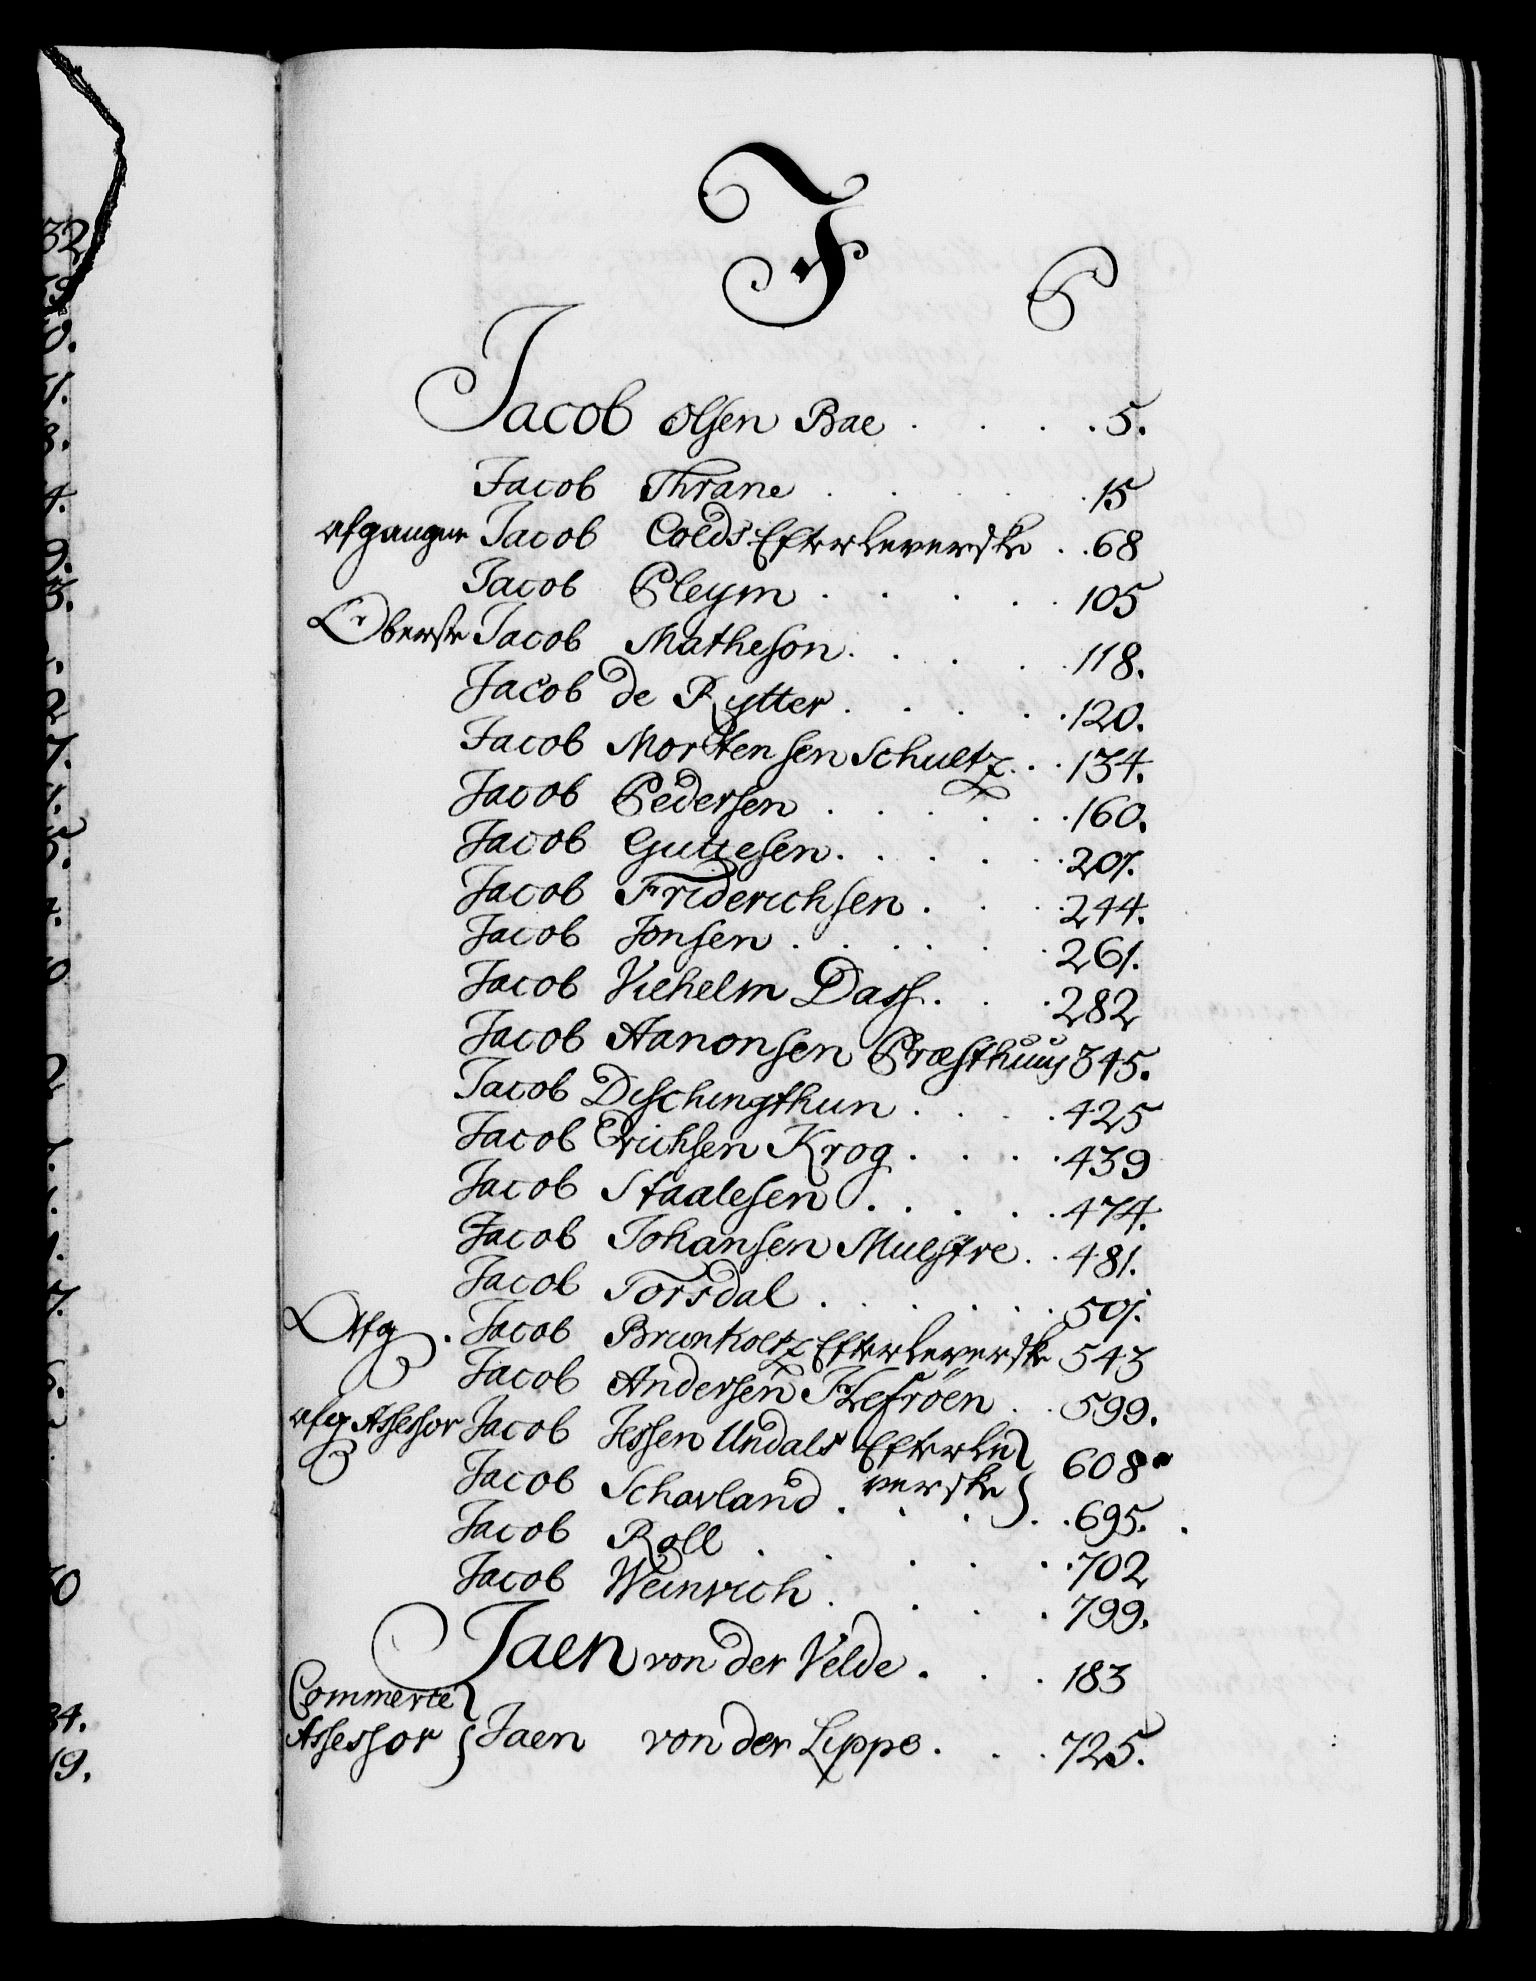 J
P
Jacob Olsen Bae . . . . 5.
Jacob Thrane . . . . . 15
afgangne Jacob Colds Efterleverske . . 68
Jacob Pleym . . . . . 105
Oberste Jacob Matheson . . . . 118.
Jacob de Rytter . . . . . 120.
Jacob Mortensen Schultz . . 134.
Jacob Pedersen . . . . . 160.
Jacob Guttesen . . . . . 207.
Jacob Friderichsen . . . 244.
Jacob Jonsen . . . . . . 261.
Jacob Vilhelm Dass . . . 282
Jacob Aanonsen Præsthuus 345.
Jacob Dischingthun . . . . 425
Jacob Erichsen Krog . . . . 439
Jacob Staalesen . . . . . 474.
Jacob Johansen Mulstre . . 481.
Jacob Torsdal . . . . . . 507.
Afg. Jacob Brunholtz Efterleverske 543
Jacob Andersen Hefröen . . 599.
afg Assessor Jacob Jessen Undals Efterle
verske 608
Jacob Schavland . . . . . 695.
Jacob Roll . . . . . . 702
Jacob Weinrich . . . . 799.
Jaen von der Velde . . . 183
Commerce
Assessor Jaen von der Lippe . . . 725.
32
34.
19.